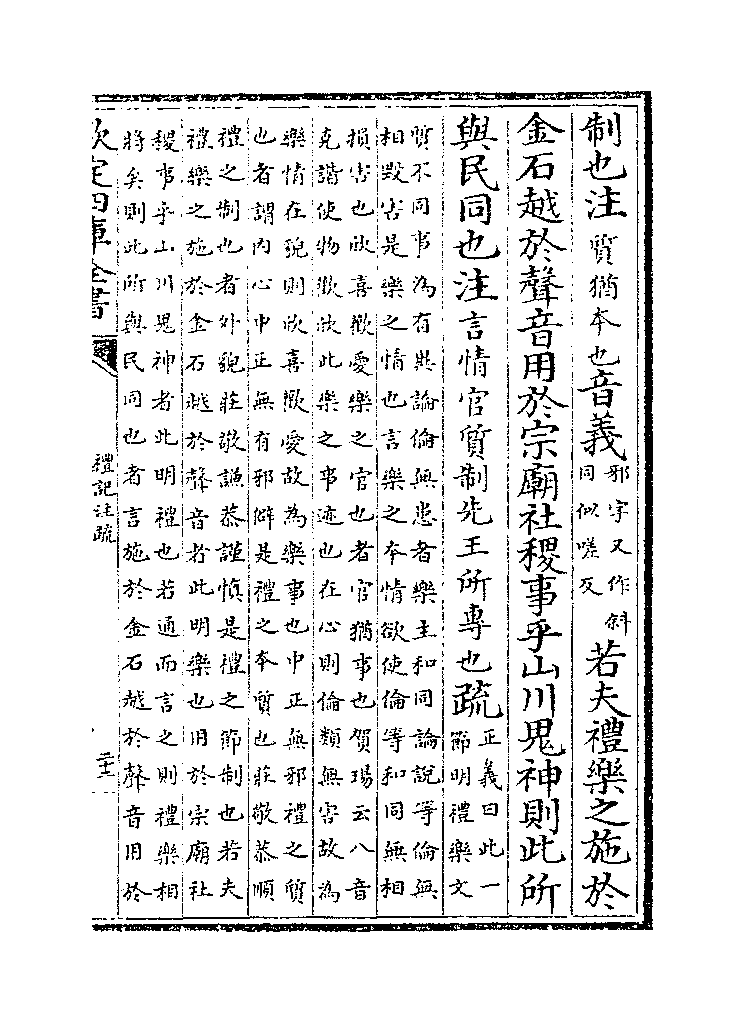 制也注質猶本也音義邪字又作斜
同似嗟反若夫禮樂之施於
金石越於聲音用於宗廟社稷事乎山川鬼神則此所
與民同也注言情官質制先王所專也疏正義曰此一
節明禮樂文
質不同事為有異論倫無患者樂主和同論說等倫無
相毀害是樂之情也言樂之本情欲使倫等和同無相
損害也欣喜歡愛樂之官也者官猶事也賀瑒云八音
克諧使物歡欣此樂之事迹也在心則倫類無害故為
樂情在貌則欣喜歡愛故為樂事也中正無邪禮之質
也者謂内心中正無有邪僻是禮之本質也莊敬恭順
禮之制也者外貌莊敬謙恭謹慎是禮之節制也若夫
禮樂之施於金石越於聲音者此明樂也用於宗廟社
稷事乎山川鬼神者此明禮也若通而言之則禮樂相
將矣則此所與民同也者言施於金石越於聲音用於
欽定四庫全書
禮記注疏
二十三